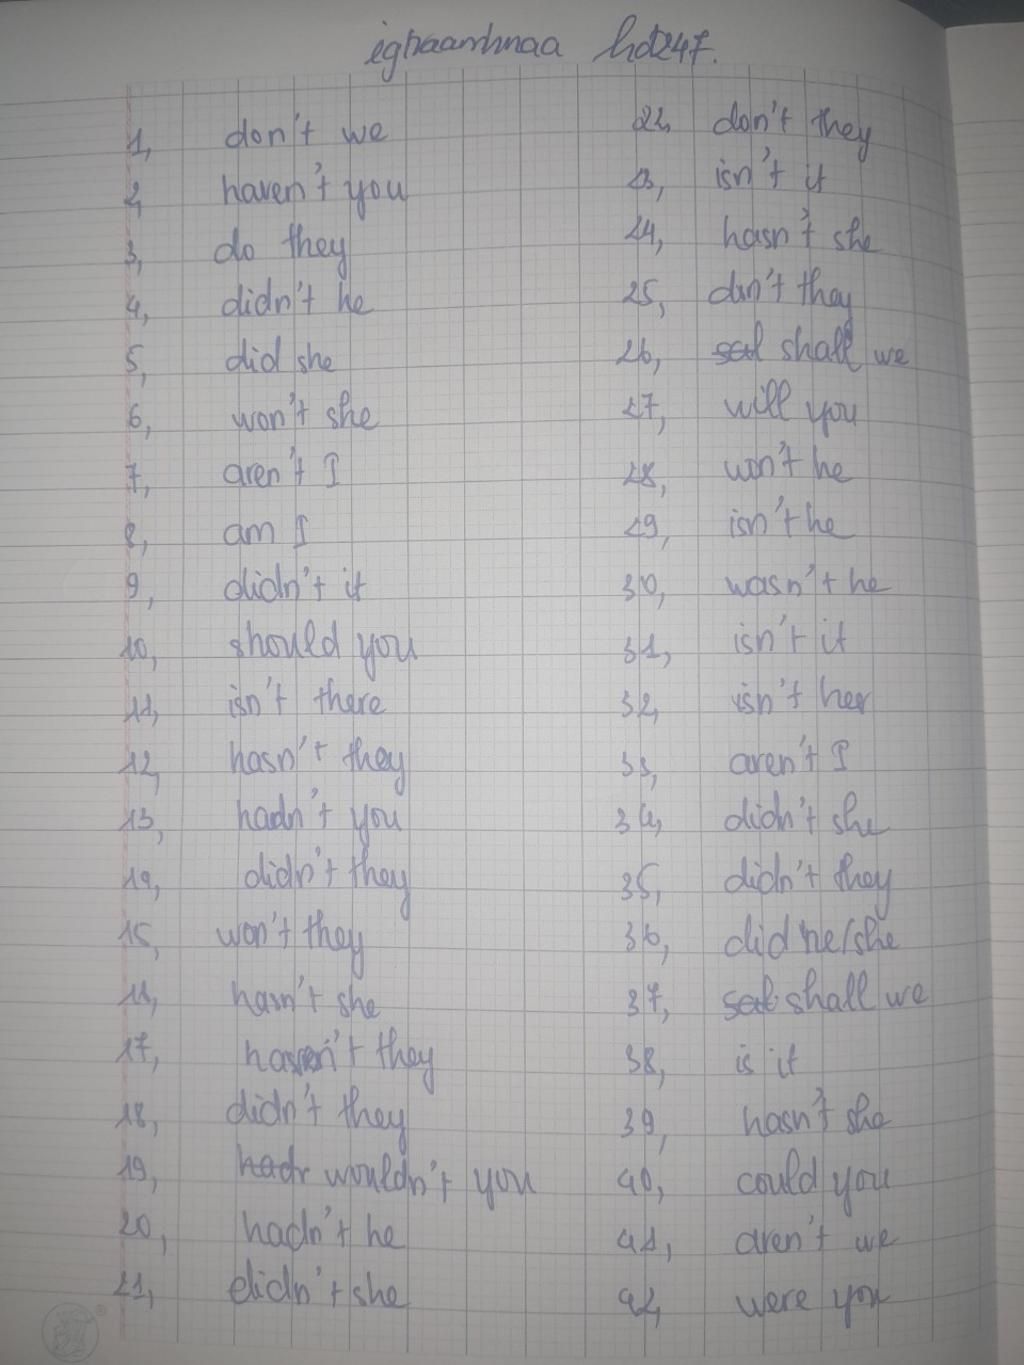 ighaamhnaa hd247.
1, don't we
2, haven't you
3, do they
4, didn't he
5, did she
6, won't she
7, aren't I
8, am I
9, didn't it
10, should you
11, isn't there
12, hasn't they
13, hadn't you
14, didn't they
15, won't they
16, hasn't she
17, haven't they
18, didn't they
19, wouldn't you
20, hadn't he
21, didn't she
22, don't they
23, isn't it
24, hasn't she
25, don't they
26, shall we
27, will you
28, won't he
29, isn't he
30, wasn't he
31, isn't it
32, isn't her
33, aren't I
34, didn't she
35, didn't they
36, did he/she
37, shall we
38, is it
39, hasn't she
40, could you
41, aren't we
42, were you